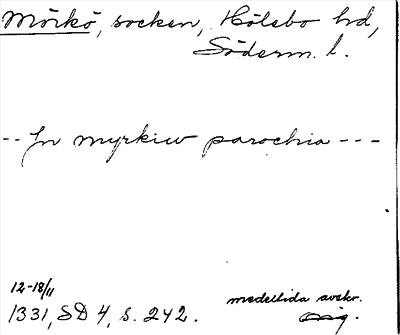 Mörkö, socken, Hölebo hd,
Söderm. l.
-- In myrkiw parochia ---
12-18/11
1331, SD 4, s. 242.
medeltida avskr.
orig.